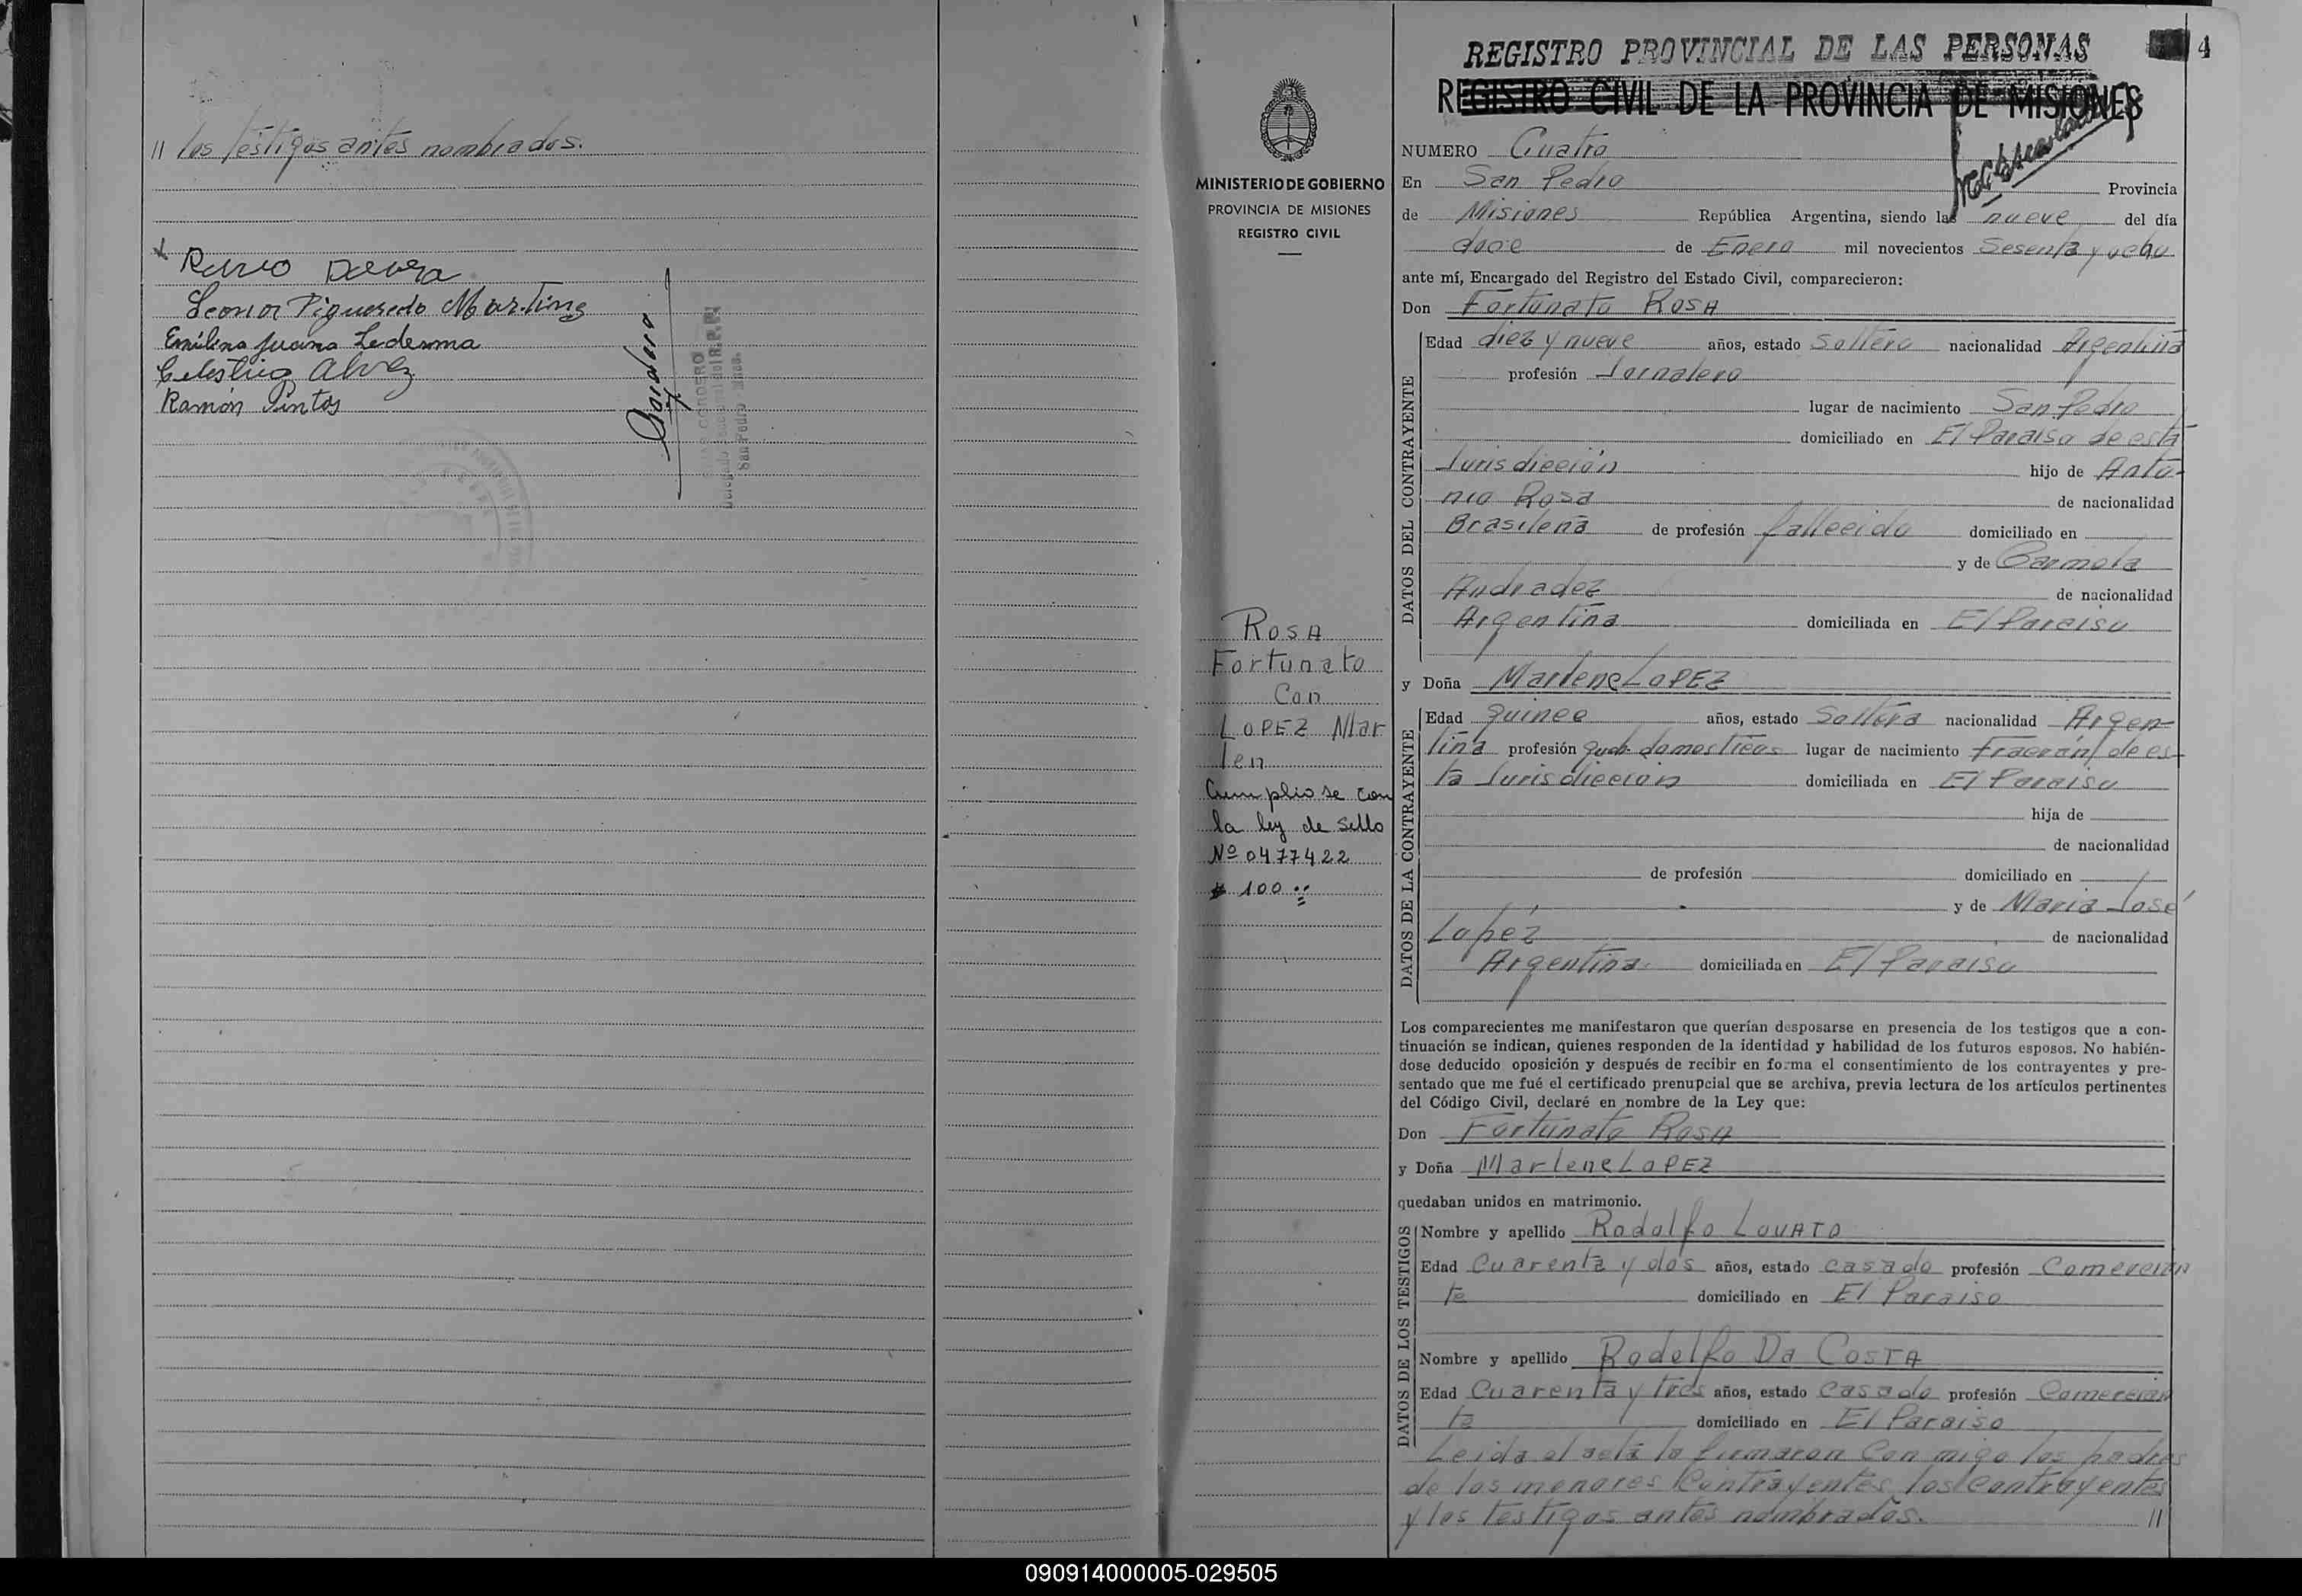 // los testigos antes nombrados.
Leonor Figueredo Martins
Emilina Juana Ledesma
Celestino Alvez
Ramón Pintos
CORDERO
San Pedro - Mnes.
MINISTERIO DE GOBIERNO
PROVINCIA DE MISIONES
REGISTRO CIVIL
ROSA
Fortunato
Con
LOPEZ Mar
len
Cumpliose con
la ley de sello
Nº 0477422
$ 100
REGISTRO PROVINCIAL DE LAS PERSONAS
4
REGISTRO CIVIL DE LA PROVINCIA DE MISIONES
NUMERO Cuatro
En San Pedro Provincia
de Misiones República Argentina, siendo las nueve del día
doce de Enero mil novecientos Sesenta y ocho
ante mí, Encargado del Registro del Estado Civil, comparecieron:
Don Fortunato ROSA
DATOS DEL CONTRAYENTE
Edad diez y nueve años, estado Soltero nacionalidad Argentina
profesión Jornalero
lugar de nacimiento San Pedro
domiciliado en El Paraiso de esta
Jurisdicción hijo de Anto-
nio Rosa de nacionalidad
Brasileña de profesión fallecido domiciliado en
y de Carmela
Andradez de nacionalidad
Argentina domiciliada en El Paraiso
y Doña Marlene LOPEZ
DATOS DE LA CONTRAYENTE
Edad quince años, estado Soltera nacionalidad Argen-
tina profesión queh. domesticos lugar de nacimiento Fracrán/ de es-
ta Jurisdicción domiciliada en El Paraiso
hija de
de nacionalidad
de profesión domiciliado en
y de Maria José
Lopez de nacionalidad
Argentina domiciliada en El Paraiso
Los comparecientes me manifestaron que querían desposarse en presencia de los testigos que a con-
tinuación se indican, quienes responden de la identidad y habilidad de los futuros esposos. No habién-
dose deducido oposición y después de recibir en forma el consentimiento de los contrayentes y pre-
sentado que me fué el certificado prenupcial que se archiva, previa lectura de los artículos pertinentes
del Código Civil, declaré en nombre de la Ley que:
Don Fortunato ROSA
y Doña Marlene LOPEZ
quedaban unidos en matrimonio.
DATOS DE LOS TESTIGOS
Nombre y apellido Rodolfo LOVATO
Edad Cuarenta y dos años, estado casado profesión Comercian
te domiciliado en El Paraiso
Nombre y apellido Rodolfo Da COSTA
Edad Cuarenta y tres años, estado casado profesión Comercian
te domiciliado en El Paraiso
Leida el acta la firmaron con migo los padres
de los menores Contrayentes, los Contrayentes
y los testigos antes nombrados. //
090914000005-029505